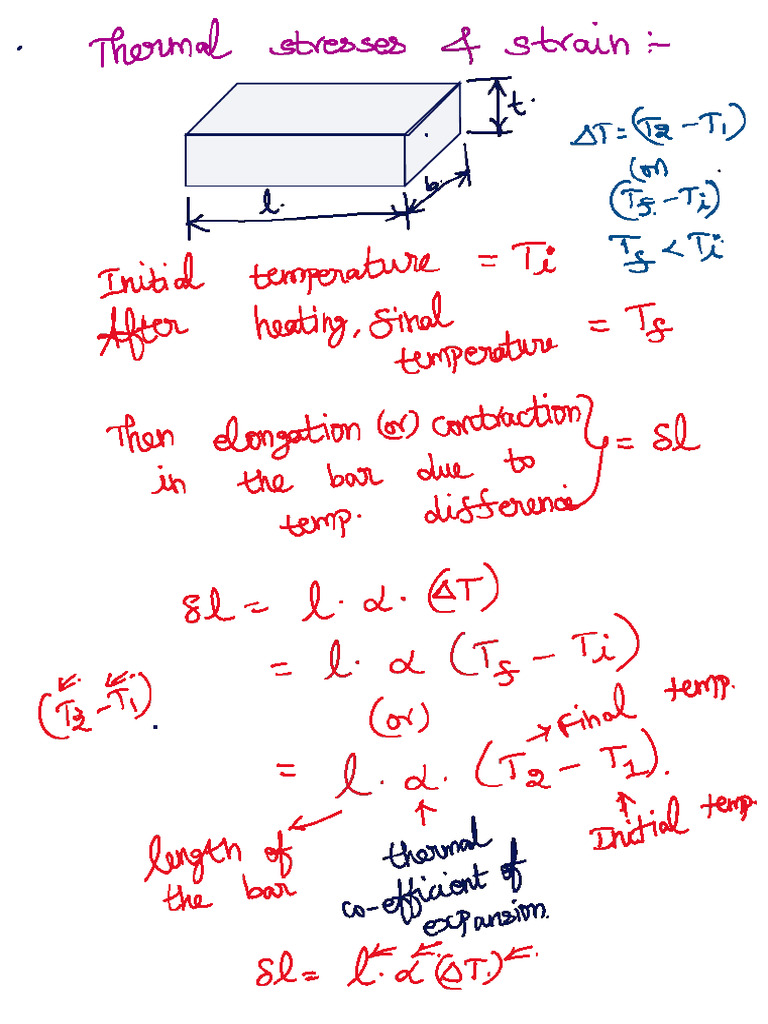 Thermal stresses & strain :-
t.
b.
l.
ΔT = (T2 - T1)
(or)
(Tf - Ti)
Tf < Ti
Initial temperature = Ti
After heating, final
temperature = Tf
Then elongation (or) contraction
in the bar due to
temp. difference
= δl
δl = l. α. (ΔT)
= l. α (Tf - Ti)
(T2 - T1).
(or)
→ Final temp.
= l. α. (T2 - T1).
Initial temp.
length of
the bar
thermal
co-efficient of
expansion.
δl = l. α (ΔT)